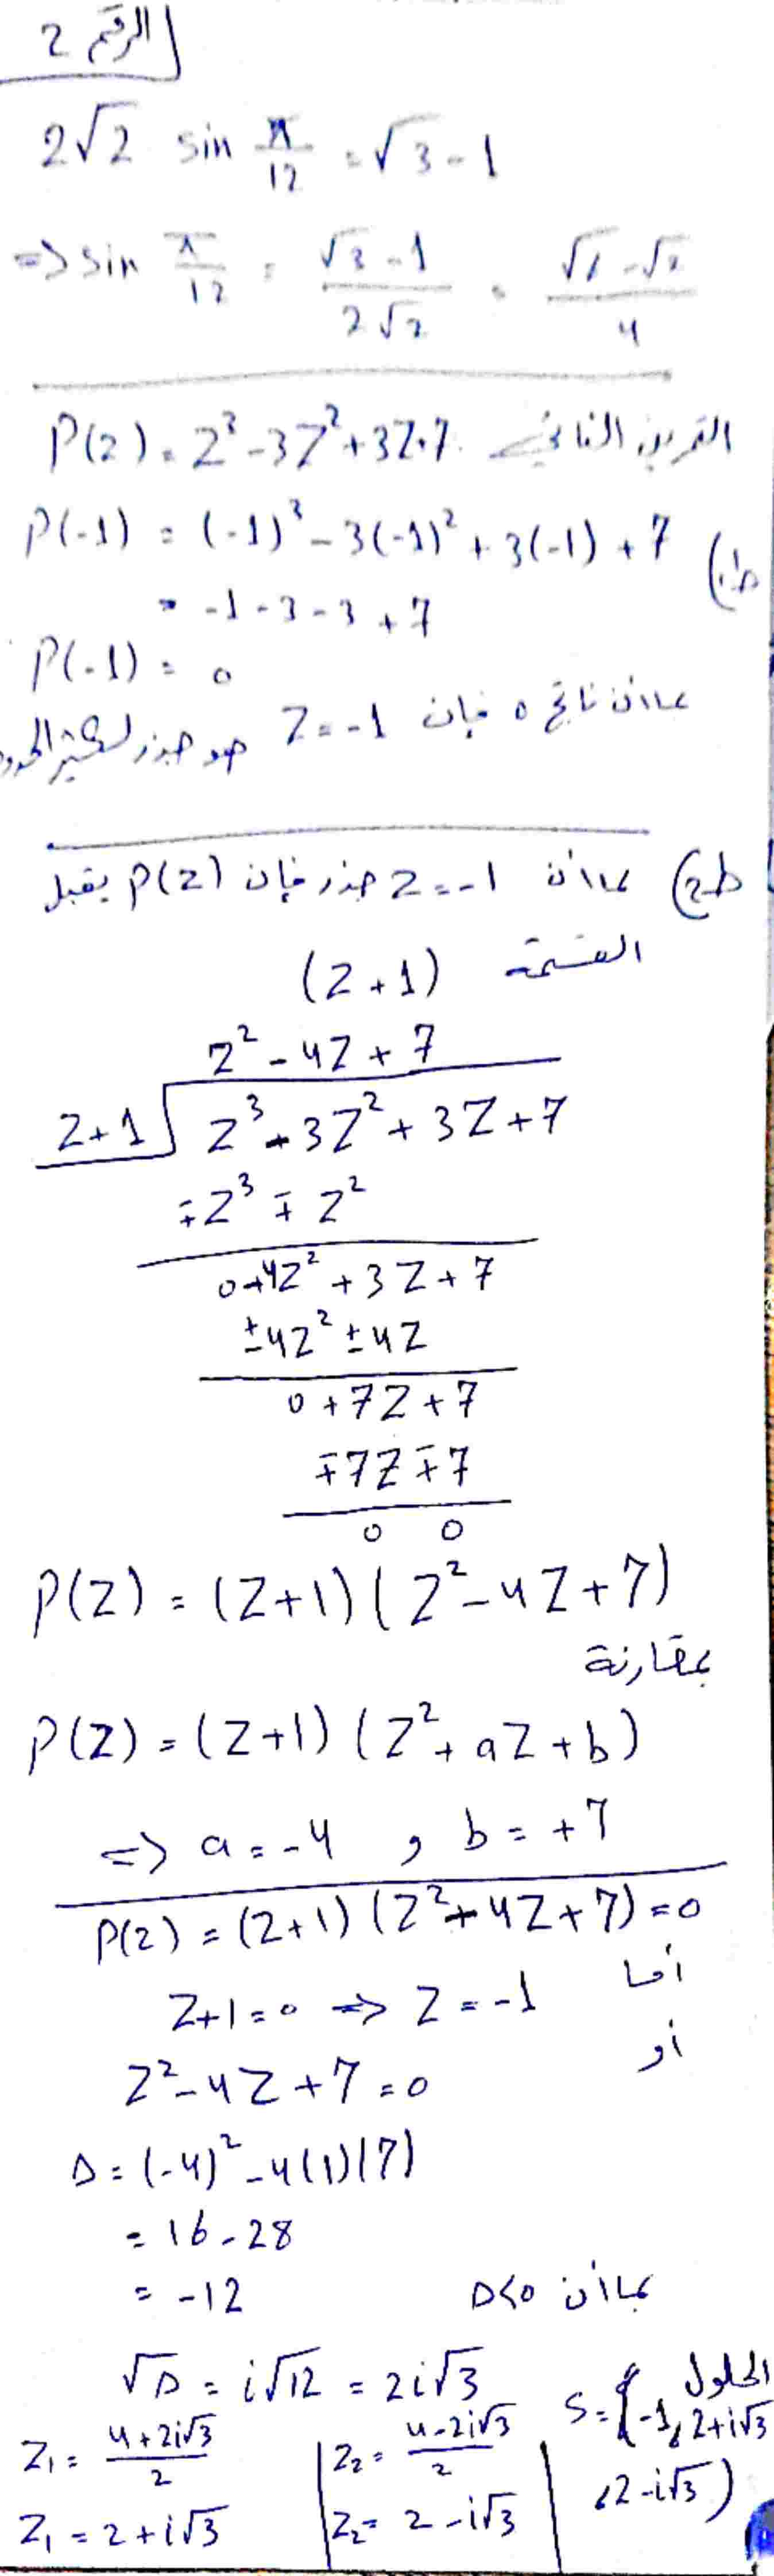 الرقم 2
2√2 sin π/12 = √3 - 1
=> sin π/12 = (√3 - 1)/(2√2) = (√6 - √2)/4
التمرين الثاني P(z) = Z³ - 3Z² + 3Z + 7
ط1) P(-1) = (-1)³ - 3(-1)² + 3(-1) + 7
= -1 - 3 - 3 + 7
P(-1) = 0
بما ان ناتج 0 فإن Z = -1 هو جذر لكثير الحدود
ط2) بما أن Z = -1 جذر فإن P(Z) يقبل
القسمة (Z + 1)
Z² - 4Z + 7
Z + 1 Z³ - 3Z² + 3Z + 7
∓Z³ ∓ Z²
0 - 4Z² + 3Z + 7
±4Z² ± 4Z
0 + 7Z + 7
∓7Z ∓ 7
0 0
P(Z) = (Z+1)(Z² - 4Z + 7)
بمقارنة
P(Z) = (Z+1)(Z² + aZ + b)
=> a = -4 , b = +7
P(Z) = (Z+1)(Z² - 4Z + 7) = 0
أما Z+1 = 0 => Z = -1
أو
Z² - 4Z + 7 = 0
Δ = (-4)² - 4(1)(7)
= 16 - 28
= -12 بما أن Δ<0
√Δ = i√12 = 2i√3
Z₁ = (4 + 2i√3)/2 Z₂ = (4 - 2i√3)/2
Z₁ = 2 + i√3 Z₂ = 2 - i√3
الحلول
S = {-1, 2+i√3
, 2-i√3}